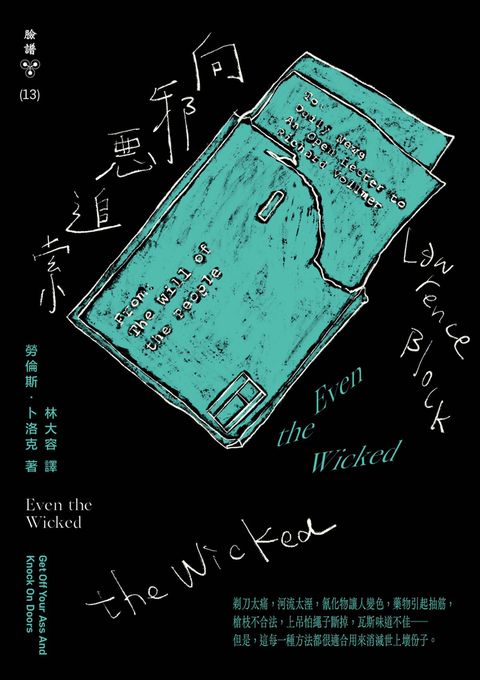 臉譜
(13)
向邪惡追索
To.
Daily News
An Open Letter to
Richard Vollmer
From.
The Will of
the People
Lawrence
Block
勞倫斯．卜洛克 著
林大容 譯
Even
the
Wicked
Even the
Wicked
the Wicked
Get Off Your Ass And
Knock On Doors
剃刀太痛，河流太溼，氰化物讓人變色，藥物引起抽筋，
槍枝不合法，上吊怕繩子斷掉，瓦斯味道不佳──
但是，這每一種方法都很適合用來消滅世上壞份子。